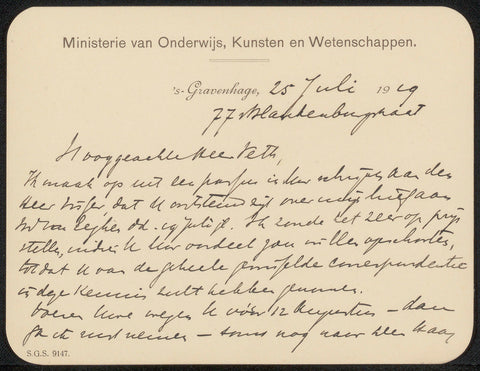 Ministerie van Onderwijs, Kunsten en Wetenschappen.
's-Gravenhage, 25 Juli 1919
77 Blankenburgstraat
Hooggeachte Heer Veth,
Ik maak op uit een passus in Uw schrijven aan den
Heer Visser dat U ontstemd zijt over mijn brief aan
van Eeghen dd. 19 Juli jl. Ik zoude het zeer op prijs
stellen, indien U Uw oordeel zou willen opschorten,
totdat U van de geheele gewisselde correspondentie
in deze kennis zult hebben genomen.
Uwe wegen U vóór 12 Augustus – dan
ga ik met – soms nog naar Den Haag
S.G.S. 9147.